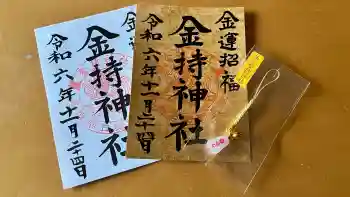 金運
金持神社
令和六年十一月二十四日
金運招福
金持神社
令和六年十一月二十四日